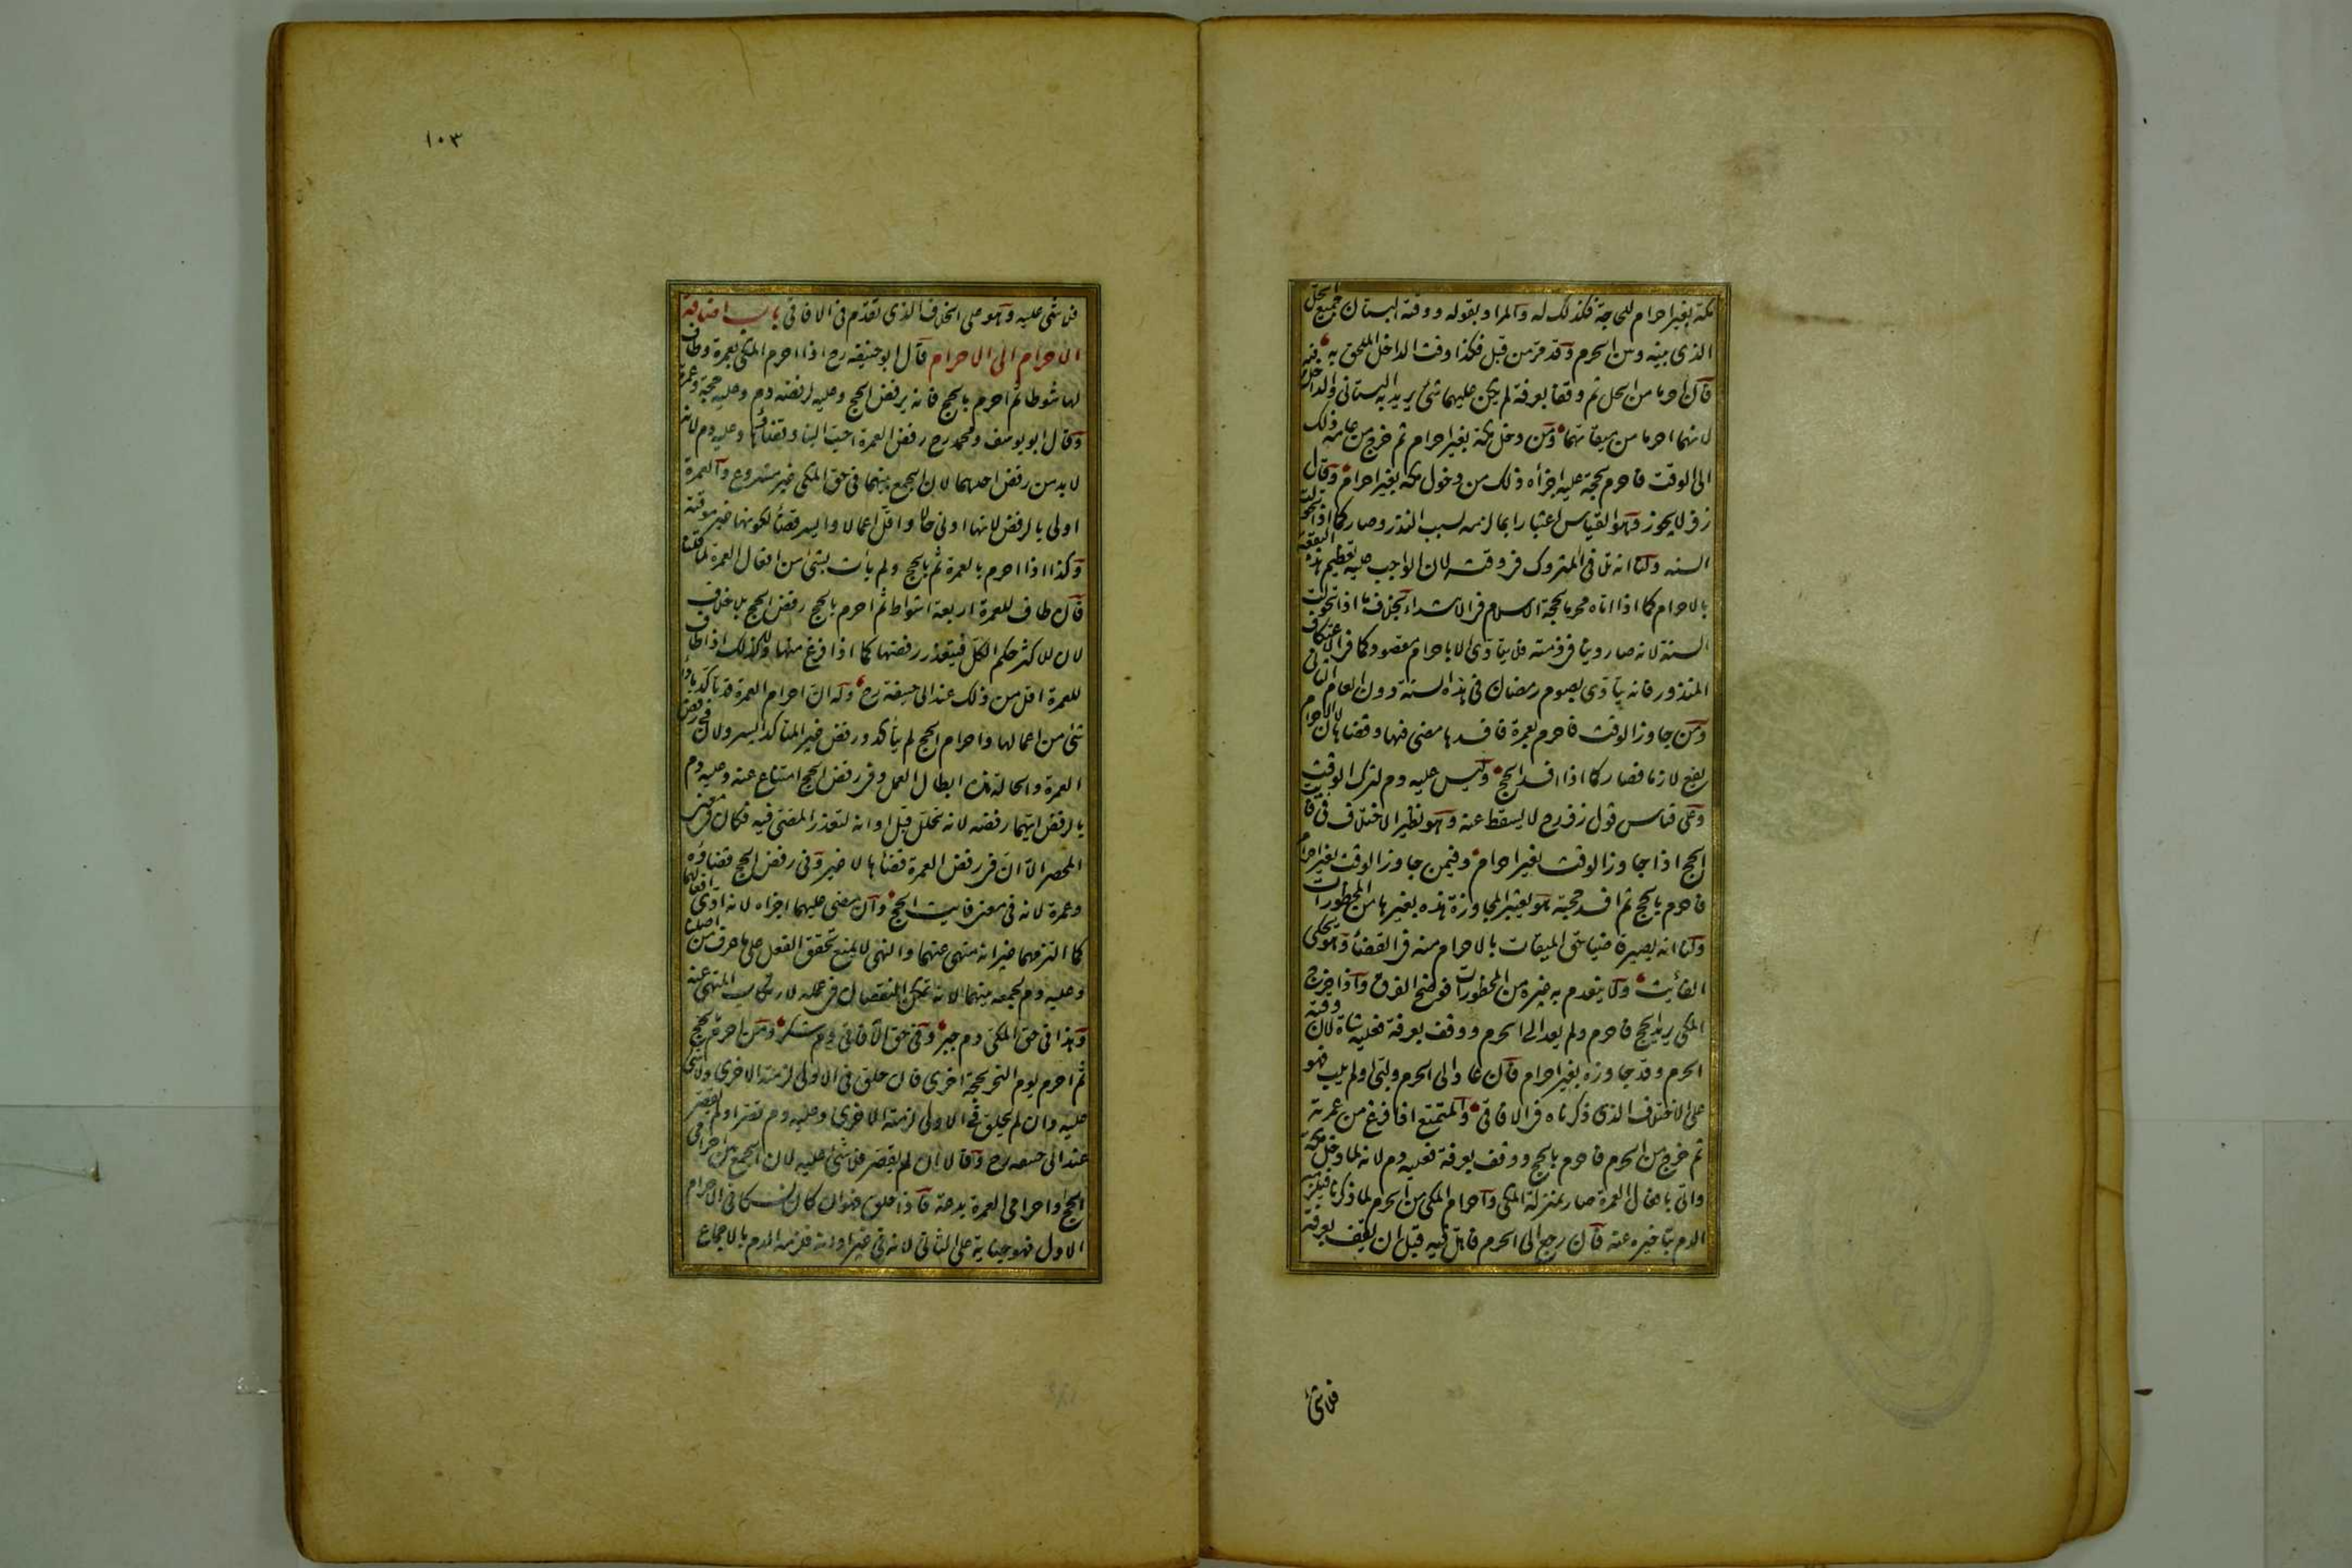 مكة بغير احرام للحاجة فكذلك له والمراد بقوله ووقته البستان جميع الحل
الذى بينه وبين الحرم وقد مر من قبل فكذا وقت الداخل الملحق به
فان احرما من الحل ثم وقفا بعرفة لم يكن عليهما شئ يريد به البستانى والداخل فيه
لانهما احرما من ميقاتهما ومن دخل مكة بغير احرام ثم خرج من عامه ذلك
الى الوقت فاحرم بحجة عليه اجزأه ذلك من دخول مكة بغير احرام وقال
زفر لا يجوز وهو القياس اعتبارا بما لزمه بسبب النذر وصار كما اذا تحولت
السنه ولنا انه تلافى المتروك فى وقته لان الواجب عليه تعظيم هذه البقعة
بالاحرام كما اذا اتاه محرما بحجة الاسلام فى الابتداء بخلاف ما اذا تحولت
السنة لانه صار دينا فى ذمته فلا يتادى الا باحرام مقصود كما فى الاعتكاف
المنذور فانه يتادى بصوم رمضان فى هذه السنة دون العام الثانى
ومن جاوز الوقت فاحرم بعمرة فافسدها مضى فيها وقضاها لان الاحرام
يقع لازما فصار كما اذا افسد الحج وليس عليه دم لترك الوقت
وعلى قياس قول زفر رح لا يسقط عنه وهو نظير الاختلاف فى فائت
الحج اذا جاوز الوقت بغير احرام وفيمن جاوز الوقت بغير احرام
فاحرم بالحج ثم افسد حجته هو يعتبر المجاوزة هذه بغيرها من المحظورات
ولنا انه يصير قاضيا حق الميقات بالاحرام منه فى القضاء وهو يحكى
الفائت ولا ينعدم به غيره من المحظورات فوضح الفرق واذا خرج
المكى يريد الحج فاحرم ولم يعد الى الحرم ووقف بعرفة فعليه شاة لان وقته
الحرم وقد جاوزه بغير احرام فان عاد الى الحرم ولبى او لم يلب فهو
على الاختلاف الذى ذكرناه فى الافاقى والمتمتع اذا فرغ من عمرته
ثم خرج من الحرم فاحرم بالحج ووقف بعرفة فعليه دم لانه لما دخل مكة
واتى بافعال العمرة صار بمنزلة المكى واحرام المكى من الحرم لما ذكرنا فيلزمه
الدم بتاخيره عنه فان رجع الى الحرم فاهل فيه قبل ان يقف بعرفة
فلا شئ
١٠٣
فلا شئ عليه وهو على الخلاف الذى تقدم فى الافاقى باب اضافة
الاحرام الى الاحرام قال ابو حنيفه رح اذا احرم المكى بعمرة وطاف
لها شوطا ثم احرم بالحج فانه يرفض الحج وعليه لرفضه دم وعليه حجة وعمرة
وقال ابو يوسف ومحمد رح رفض العمرة احب الينا وقضاؤها وعليه دم لانه
لا بد من رفض احدهما لان الجمع بينهما فى حق المكى غير مشروع والعمرة
اولى بالرفض لانها ادنى حالا واقل اعمالا وايسر قضاء لكونها غير موقتة
وكذا اذا احرم بالعمرة ثم بالحج ولم يأت بشئ من افعال العمرة لما قلنا
فان طاف للعمرة اربعة اشواط ثم احرم بالحج رفض الحج بلا خلاف
لان للاكثر حكم الكل فيتعذر رفضها كما اذا فرغ منها وكذلك اذا طاف
للعمرة اقل من ذلك عند ابى حنيفة رح وله ان احرام العمرة قد تأكد باداء
شئ من اعمالها واحرام الحج لم يتأكد ورفض غير المتأكد ايسر ولان فى رفض
العمرة والحالة هذه ابطال العمل وفى رفض الحج امتناع عنه وعليه دم
بالرفض ايهما رفضه لانه تحلل قبل اوانه لتعذر المضى فيه فكان فى معنى
المحصر الا ان فى رفض العمرة قضاءها لا غير وفى رفض الحج قضاؤه
وعمرة لانه فى معنى فايت الحج وان مضى عليهما اجزاه لانه ادى افعالهما
كما التزمهما غير انه منهى عنهما والنهى لا يمنع تحقق الفعل على ما عرف من اصلنا
وعليه دم لجمعه بينهما لانه تمكن النقصان فى عمله لارتكاب المنهى عنه
وهذا فى حق المكى دم جبر وفى حق الافاقى دم شكر ومن احرم بحج
ثم احرم يوم النحر بحجة اخرى فان حلق فى الاولى لزمته الاخرى ولا شئ
عليه وان لم يحلق فى الاولى لزمته الاخرى وعليه دم قصر او لم يقصر
عند ابى حنيفه رح وقالا ان لم يقصر فلا شئ عليه لان الجمع بين احرامى
الحج او احرامى العمرة بدعة فاذا حلق فهو ان كان نسكا فى الاحرام
الاول فهو جناية على الثانى لانه فى غير اوانه فلزمه الدم بالاجماع